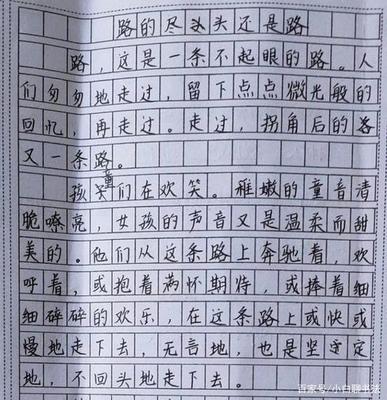 路的尽头还是路
路，这是一条不起眼的路。人
们匆匆地走过，留下点点微光般的
回忆，再走过。走过，拐角后的各
又一条路。
孩童们在欢笑。稚嫩的童音清
脆嘹亮，女孩的声音又是温柔而甜
美的。他们从这条路上奔驰着，欢
呼着，或抱着满怀期待，或捧着细
细碎碎的欢乐，在这条路上或快或
慢地走下去，无言地，也是坚定
地，不回头地走下去。
百家号/小白聊书法